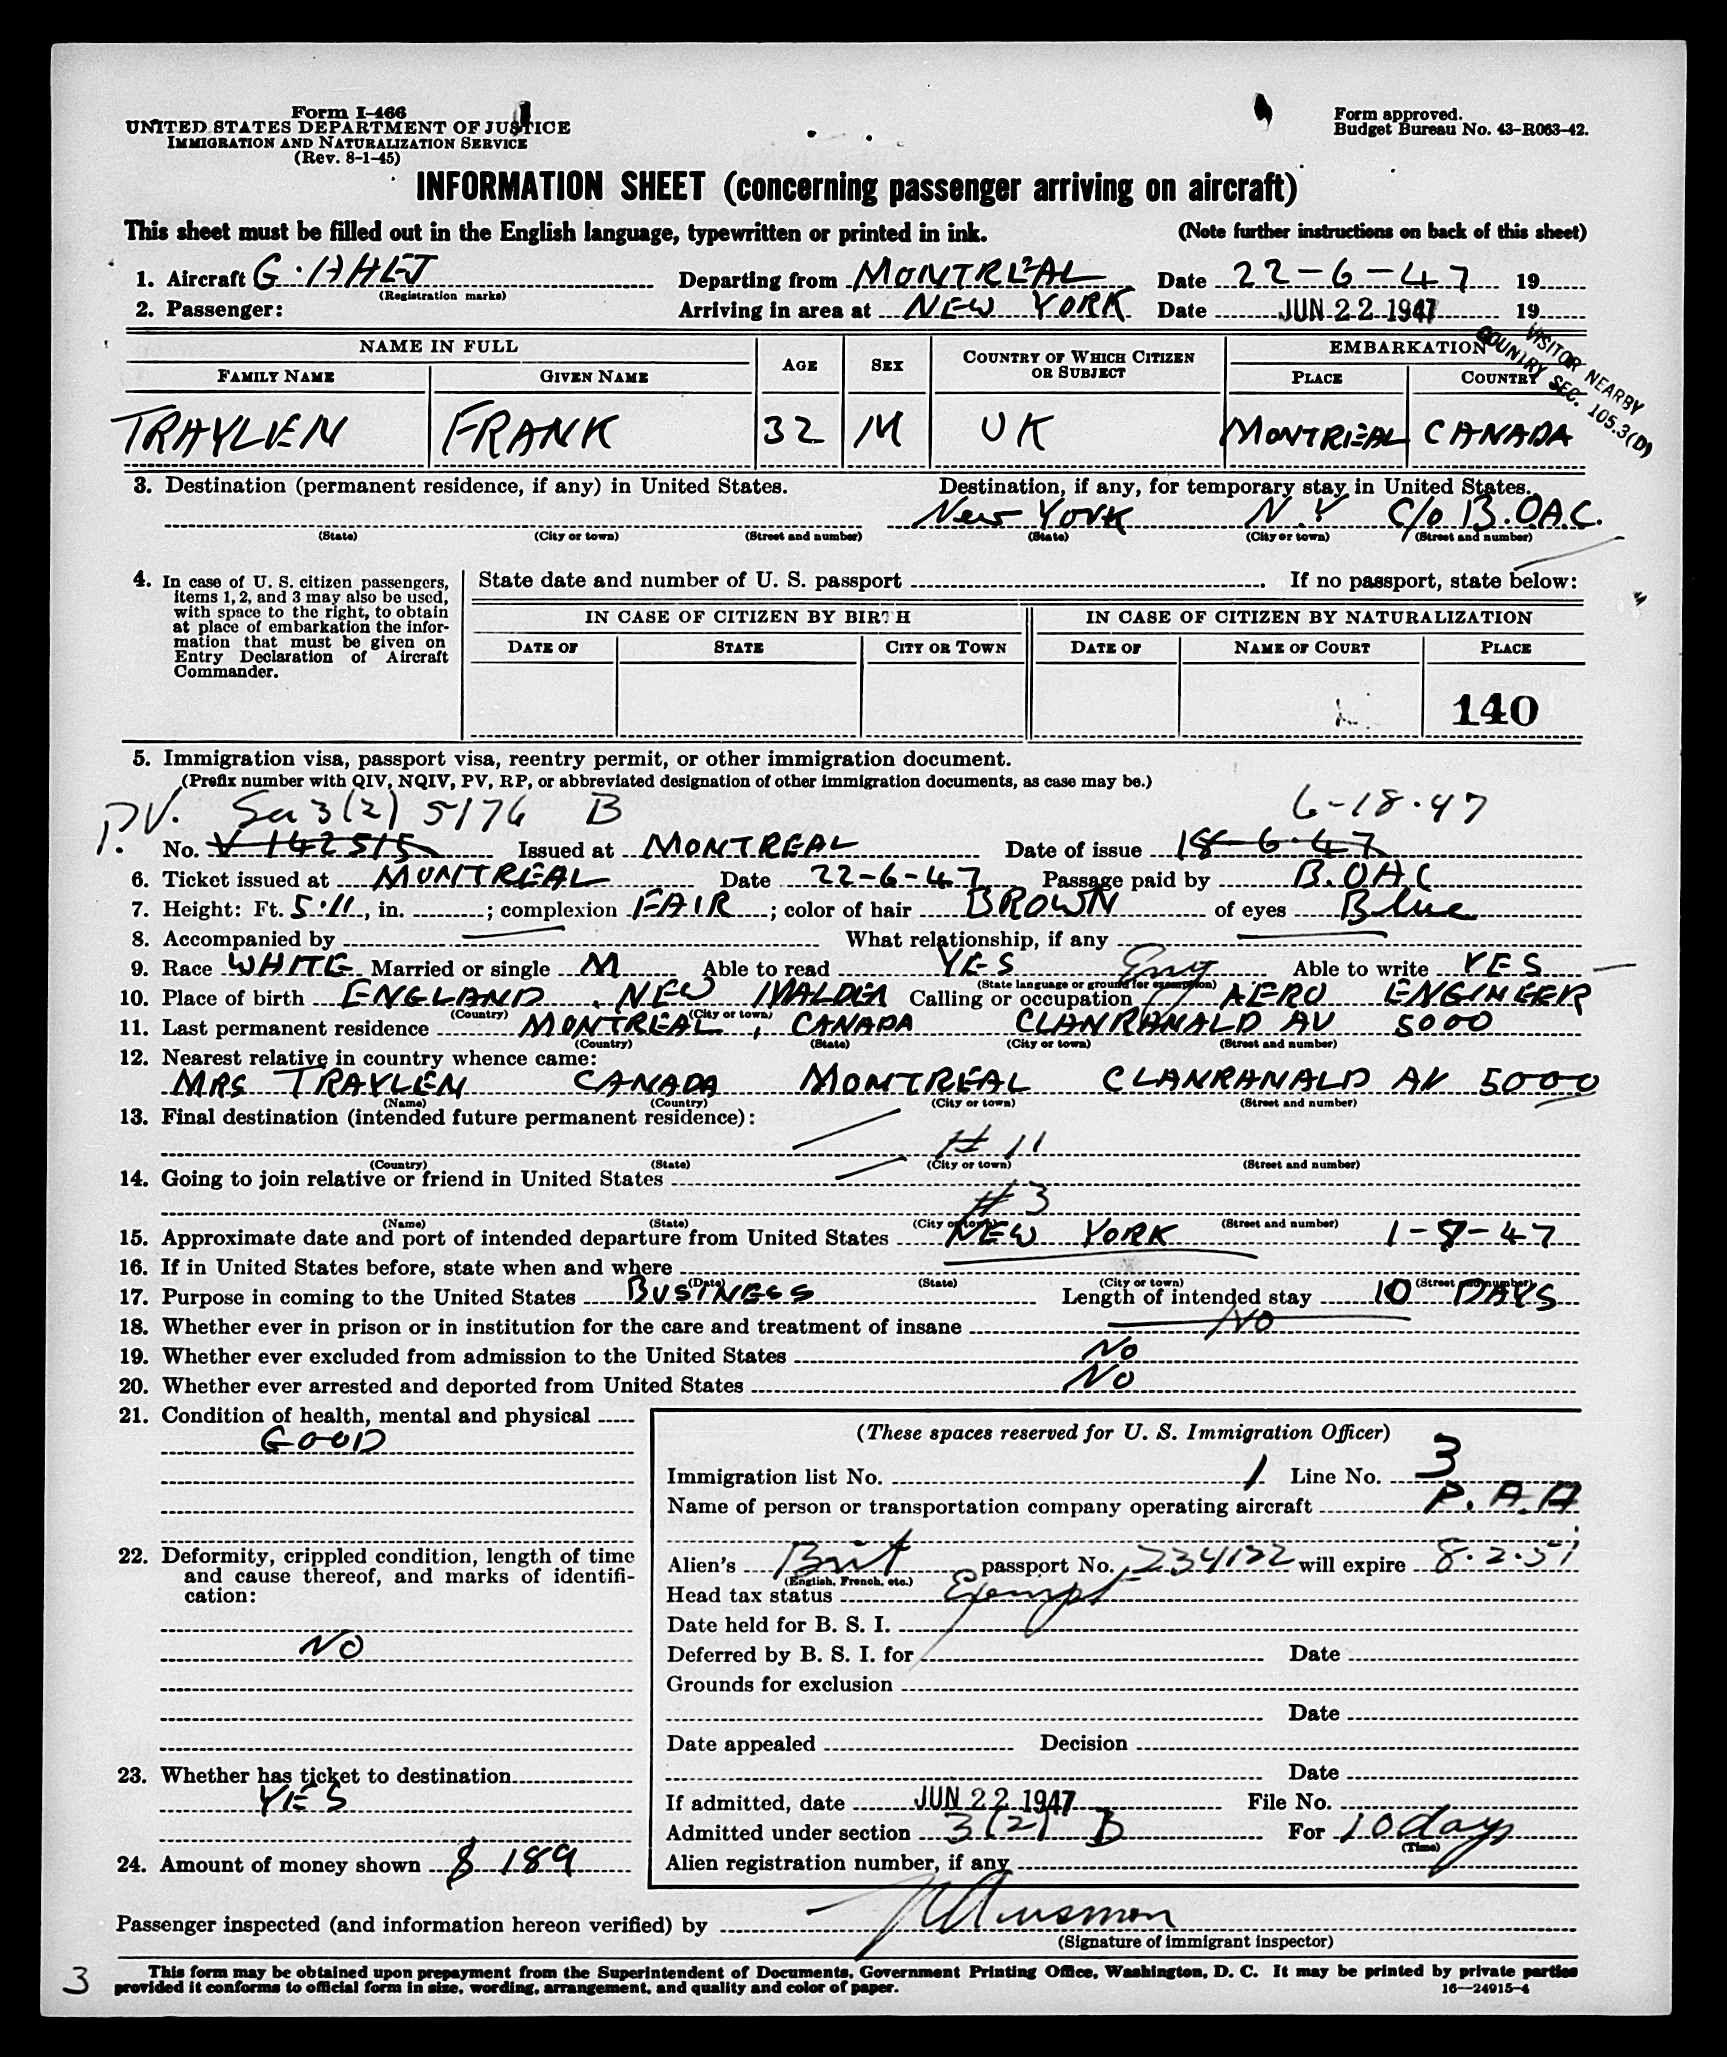 Form I-466
UNITED STATES DEPARTMENT OF JUSTICE
IMMIGRATION AND NATURALIZATION SERVICE
(Rev. 8-1-45)
Form approved.
Budget Bureau No. 43-R063-42.
INFORMATION SHEET (concerning passenger arriving on aircraft)
This sheet must be filled out in the English language, typewritten or printed in ink. (Note further instructions on back of this sheet)
1. Aircraft G.AHEJ Departing from MONTREAL Date 22-6-47 19
(Registration marks)
2. Passenger: Arriving in area at NEW YORK Date JUN 22 1947 19
VISITOR NEARBY
COUNTRY SEC. 105.3(D)
NAME IN FULL AGE SEX COUNTRY OF WHICH CITIZEN OR SUBJECT EMBARKATION
FAMILY NAME GIVEN NAME PLACE COUNTRY
TRAYLEN FRANK 32 M UK MONTREAL CANADA
3. Destination (permanent residence, if any) in United States. Destination, if any, for temporary stay in United States.
New York N.Y C/o B.O.A.C.
(State) (City or town) (Street and number) (State) (City or town) (Street and number)
4. In case of U. S. citizen passengers, items 1, 2, and 3 may also be used, with space to the right, to obtain at place of embarkation the information that must be given on Entry Declaration of Aircraft Commander.
State date and number of U. S. passport . If no passport, state below:
IN CASE OF CITIZEN BY BIRTH IN CASE OF CITIZEN BY NATURALIZATION
DATE OF STATE CITY OR TOWN DATE OF NAME OF COURT PLACE
140
5. Immigration visa, passport visa, reentry permit, or other immigration document.
(Prefix number with QIV, NQIV, PV, RP, or abbreviated designation of other immigration documents, as case may be.)
PV. Sec 3(2) 5176 B 6-18-47
No. V 142515 Issued at MONTREAL Date of issue 18-6-47
6. Ticket issued at MONTREAL Date 22-6-47 Passage paid by B.OAC
7. Height: Ft. 5.11, in. ; complexion FAIR ; color of hair BROWN of eyes Blue
8. Accompanied by What relationship, if any
9. Race WHITE Married or single M Able to read YES Eng Able to write YES
(State language or ground for exemption)
10. Place of birth ENGLAND. NEW MALDEN Calling or occupation AERO ENGINEER
(Country) (City or town)
11. Last permanent residence MONTREAL, CANADA CLANRANALD AV 5000
(Country) (State) (City or town) (Street and number)
12. Nearest relative in country whence came:
MRS TRAYLEN CANADA MONTREAL CLANRANALD AV 5000
(Name) (Country) (City or town) (Street and number)
13. Final destination (intended future permanent residence):
# 11
(Country) (State) (City or town) (Street and number)
14. Going to join relative or friend in United States
# 3
(Name) (State) (City or town) (Street and number)
15. Approximate date and port of intended departure from United States NEW YORK 1-8-47
16. If in United States before, state when and where
(Date) (State) (City or town) (Street and number)
17. Purpose in coming to the United States BUSINESS Length of intended stay 10 DAYS
18. Whether ever in prison or in institution for the care and treatment of insane NO
19. Whether ever excluded from admission to the United States NO
20. Whether ever arrested and deported from United States NO
21. Condition of health, mental and physical
GOOD
22. Deformity, crippled condition, length of time and cause thereof, and marks of identification:
NO
23. Whether has ticket to destination
YES
24. Amount of money shown $ 189
(These spaces reserved for U. S. Immigration Officer)
Immigration list No. 1 Line No. 3
Name of person or transportation company operating aircraft P.A.A
Alien's Brit passport No. 234122 will expire 8.2.51
(English, French, etc.)
Head tax status Exempt
Date held for B. S. I.
Deferred by B. S. I. for Date
Grounds for exclusion
Date
Date appealed Decision
Date
If admitted, date JUN 22 1947 File No.
Admitted under section 3(2) B For 10 days
(Time)
Alien registration number, if any
Passenger inspected (and information hereon verified) by
(Signature of immigrant inspector)
3
This form may be obtained upon prepayment from the Superintendent of Documents, Government Printing Office, Washington, D. C. It may be printed by private parties
provided it conforms to official form in size, wording, arrangement, and quality and color of paper. 16—24915-4